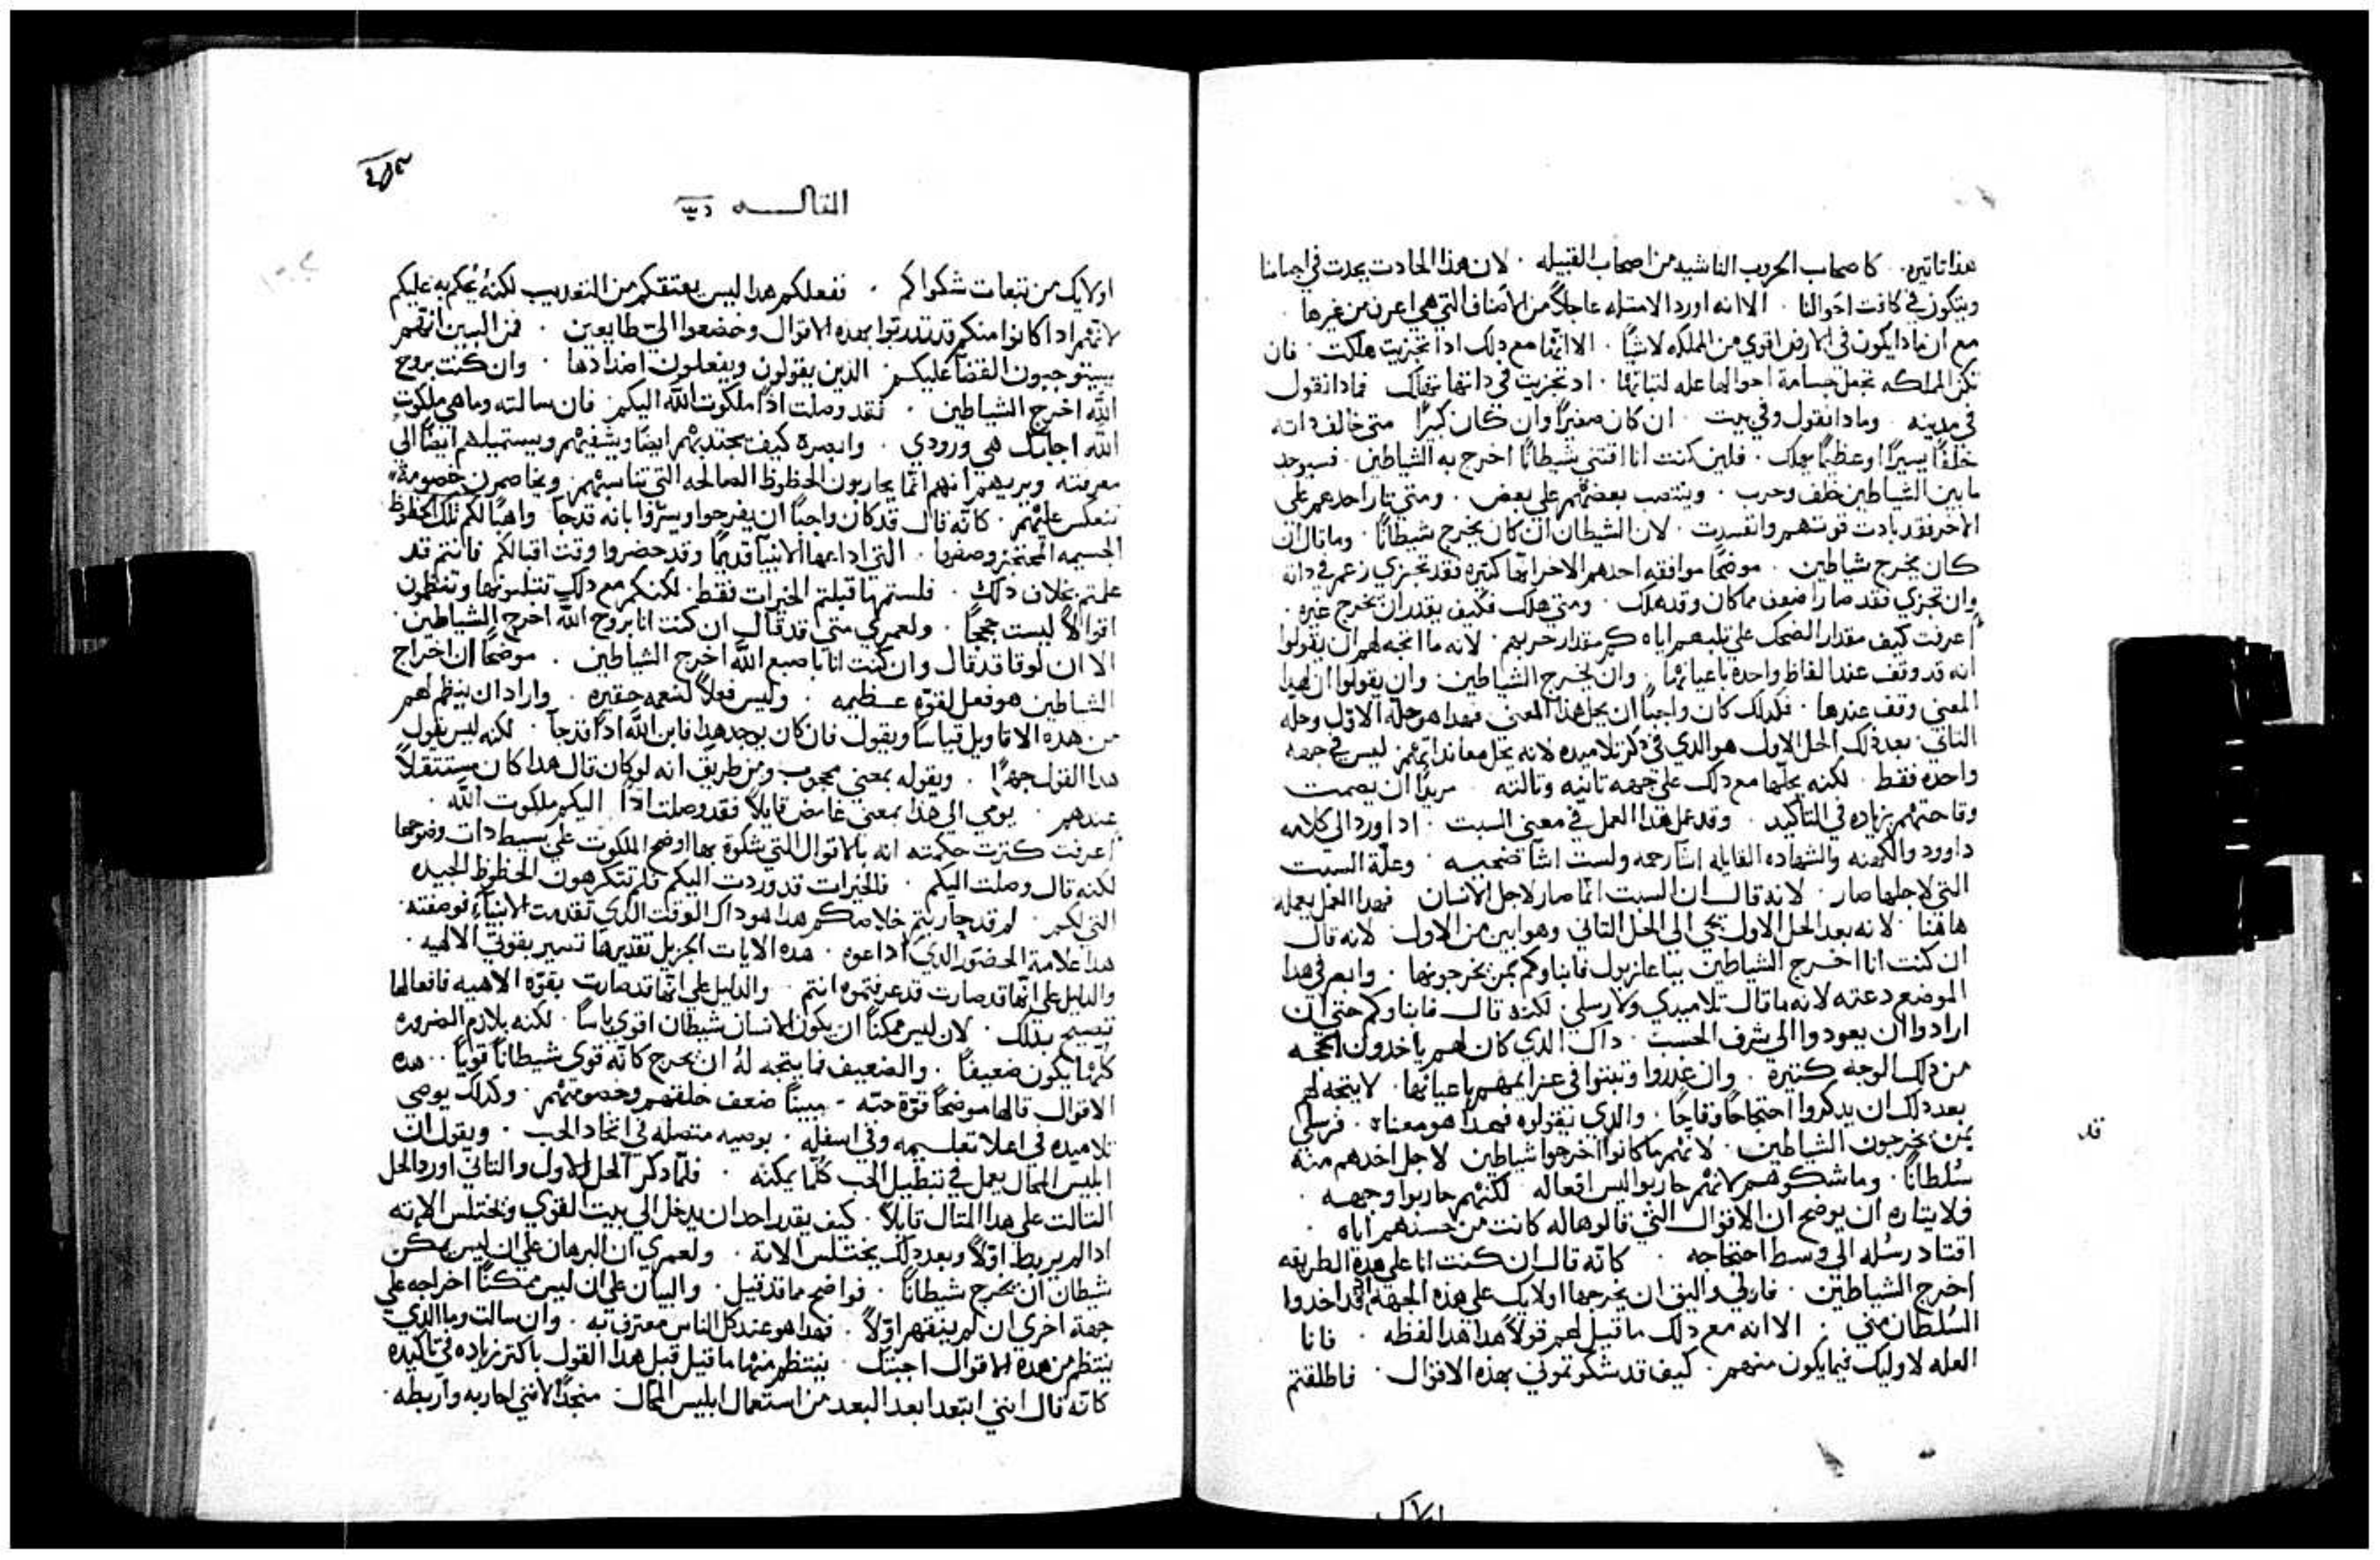 هذا تاتيره. كاصحاب الحروب الناشيه من اصحاب القبيله. لان هذا الحادت يحدت في اجسامنا
ويتكون في كافت احوالنا. الا انه اورد الامتله عاجلاً من الاصناف التي هي اعرف من غيرها.
مع ان مادا يكون في الارض اقوي من المملكه لا شياً. الا انها مع دلك ادا تجزيت هلكت. فان
تكن المملكه تجعل جسامة احوالها عله لتباتها. اد تجزيت في داتها تهلك فمادا نقول
في مدينه وما دا نقول وفي بيت. ان كان صغيراً وان كان كبيراً متي خالف داته
خلفاً يسيراً او عظيماً يهلك. فلين كنت انا اقتني شيطاناً اخرج به الشياطين. فسيوجد
ما بين الشياطين خلف وحرب. وينتصب بعضهم علي بعض. ومتي تار احدهم علي
الاخر فقد بادت قوتهم وانفسدت. لان الشيطان ان كان يخرج شيطاناً. وما قال ان
كان يخرج شياطين. موضحاً موافقه احدهم الاخر انها كتيره فقد تجزي زعم في داته
وان تجزي فقد صار اضعف مما كان وقد هلك. ومتي هلك فكيف يقدر ان يخرج غيره.
اعرفت كيف مقدار الضحك علي تلبهم اياه كم مقدار حربهم. لانه ما اتجه لهم ان يقولوا
انه قد وقف عند الفاظ واحده باعيانها. وان يخرج الشياطين. وان يقولوا ان لهدا
المعني وقف عندها. فلدلك كان واجباً ان يحل هدا المعني فهدا هو حله الاول وحله
التاني بعد دلك الحل الاول هو الدي في دكر تلاميده لانه يحل معاندا تهم ليس في جهه
واحده فقط. لكنه يحلها مع دلك علي جهه تانيه وتالته. مريداً ان يصمت
وقاحتهم بزياده في التاكيد. وقد عمل هدا العمل في معني السبت. ادا ورد الي كلامه
داوود والكهنه والشهاده القايله اشا رحمه ولست اشا ضحيه. وعلة السبت
التي لاجلها صار. لانه قال ان السبت انما صار لاجل الانسان فهدا العمل يعمله
هاهنا. لانه بعد الحل الاول يجي الي الحل التاني وهو ابين من الاول. لانه قال
ان كنت انا اخرج الشياطين بباعلزبول فابناوكم بمن يخرجونها. وابصر في هدا
الموضع دعته لانه ما قال تلاميدي ولا رسلي. لكنه قال فابناوكم حتي ان
ارادوا ان يعودوا الي شرف الحسب. داك الدي كان لهم ياخدون الحجه
من دلك الوجه كتيرة. وان غدروا وتبتوا في عزايمهم باعيانها. لا يتجه لهم
بعد دلك ان يدكروا احتجاجاً وقاحاً. والدي نقولوه فهدا هو معناه. فرسلي
بمن يخرجون الشياطين. لانهم ما كانوا اخرجوا شياطين لاجل اخدهم منه
قد
سُلطاناً. وما شكوهم لانهم حاربوا ليس افعاله لكنهم حاربوا وجهه.
فلايتاره ان يوضح ان الاقوال التي قالوها له كانت من حسدهم اياه.
اقتاد رسله الي وسط احتجاجه. كانه قال ان كنت انا علي هدة الطريقه
اخرج الشياطين. فاولي واليق ان يخرجها اولايك علي هده الجهه اد قد اخدوا
السُلطان مني. الا انه مع دلك ما قيل لهم قولاً هدا هدا لفظه. فانا
العله لاوليك فيما يكون منهم. كيف قد شكوتموني بهده الاقوال. فاطلقتم
اولايك
المقالــــه
اولايك من تبعات شكواكم. ففعلكم هدا ليس يعتقكم من التعديب لكنهُ يُحكم به عليكم
لانهم ادا كانوا منكم قد تدربوا بهده الاقوال وخضعوا الي طايعين. فمن البين انهم
يستوجبون القضا عليكم الدين يقولون ويفعلون اضدادها. وان كنت بروح
الله اخرج الشياطين. فقد وصلت اداً ملكوت الله اليكم. فان سالته وما هي ملكوت
الله اجابك هي ورودي. وابصره كيف يجتدبهم ايضاً ويشفيهم ويستميلهم ايضاً الي
معرفته ويريهم انهم انما يحاربون الحظوظ الصالحه التي تناسبهم. ويخاصمون خصومةً
تنعكس عليهم. كانه قال قد كان واجباً ان يفرحوا ويسروا بانه قد جا واهباً لكم تلك الحظوظ
الجسيمه المحتجز وصفها. التي اداعها الانبيا قديماً وقد حضروا وقت اقبالكم فانتم قد
علمتم بخلاف دلك. فلستم ما قبلتم الخيرات فقط. لكنكم مع دلك تتلبونها وتنظمون
اقوالاً ليست حججاً. ولعمري متي قد قال ان كنت انا بروح الله اخرج الشياطين.
الا ان لوقا قد قال وان كنت انا باصبع الله اخرج الشياطين. موضحاً ان اخراج
الشياطين هو فعل لقوه عــظيمه. وليس فعلاً لنعمه حقيره. واراد ان ينظم لهم
من هده الاقاويل قياساً ويقول فان كان يوجد هدا فابن الله اداً قد جآ. لكنه ليس يقول
هدا القول جهراً. ويقوله بمعني محجوب ومن طريق انه لو كان قال هدا كان مستتقلاً
عندهم. يومي الي هدا بمعني غامض قايلاً فقد وصلت اداً اليكم ملكوت الله.
اعرفت كترت حكمته انه بالاقوال التي شكوة بها اوضح الملكوت علي بسيط دات وضوحها
لكنه قال وصلت اليكم. فالخيرات قد وردت اليكم فلم تتكرهون الحظوظ الجيده
التي لكم. لم قد حاربتم خلاصكم هدا هو داك الوقت الدي تقدمت الانبيآء فوصفته.
هدا علامة الحضور الدي اداعوه. هده الايات الجزيل تقديرها تسير بقوتي الالهيه.
والدليل علي انها قد صارت قد عرفتموه انتم والدليل علي انها قد صارت بقوه الاهيه فافعالها
تصيح بدلك. لان ليس ممكناً ان يكون الانسان شيطان اقوي باساً. لكنه بلازم الضروره
كلها يكون ضعيفاً. والضعيف فما يتجه لهُ ان يخرج كانه قوي شيطاناً قوياً.. هده
الاقوال قالها موضحاً قوة حبه. مبيناً ضعف خلفهم وخصومتهم. وكدلك يوصي
تلاميده في اعلا تعلــيمه وفي اسفله. بوصيه متصله في اتحاد الحب. ويقول ان
ابليس المحال يعمل في تبطيل الحب كُلما يمكنه. فلما دكر الحل الاول والتاني اورد الحل
التالت علي هدا المتال قايلاً. كيف يقدر احد ان يدخل الي بيت القوي ويختلس الاته
ادا لم يربط اولاً وبعد دلك يختلس الاتة. ولعمري ان البرهان علي ان ليس يمكن
شيطان ان يخرج شيطاناً. فواضح مما قد قيل. والبيان علي ان ليس ممكناً اخراجه علي
جهة اخري ان لم ينقهر اولاً. فهدا هو عند كل الناس معترف به. وان سالت وما الدي
ينتظم من هده الاقوال اجبتك ينتظم منها ما قيل قبل هدا القول باكتر زياده في تاكيده
كانه قال انني ابتعد ابعد البعد من استعمال ابليس المحال منجداً لانني احاربه واربطه.